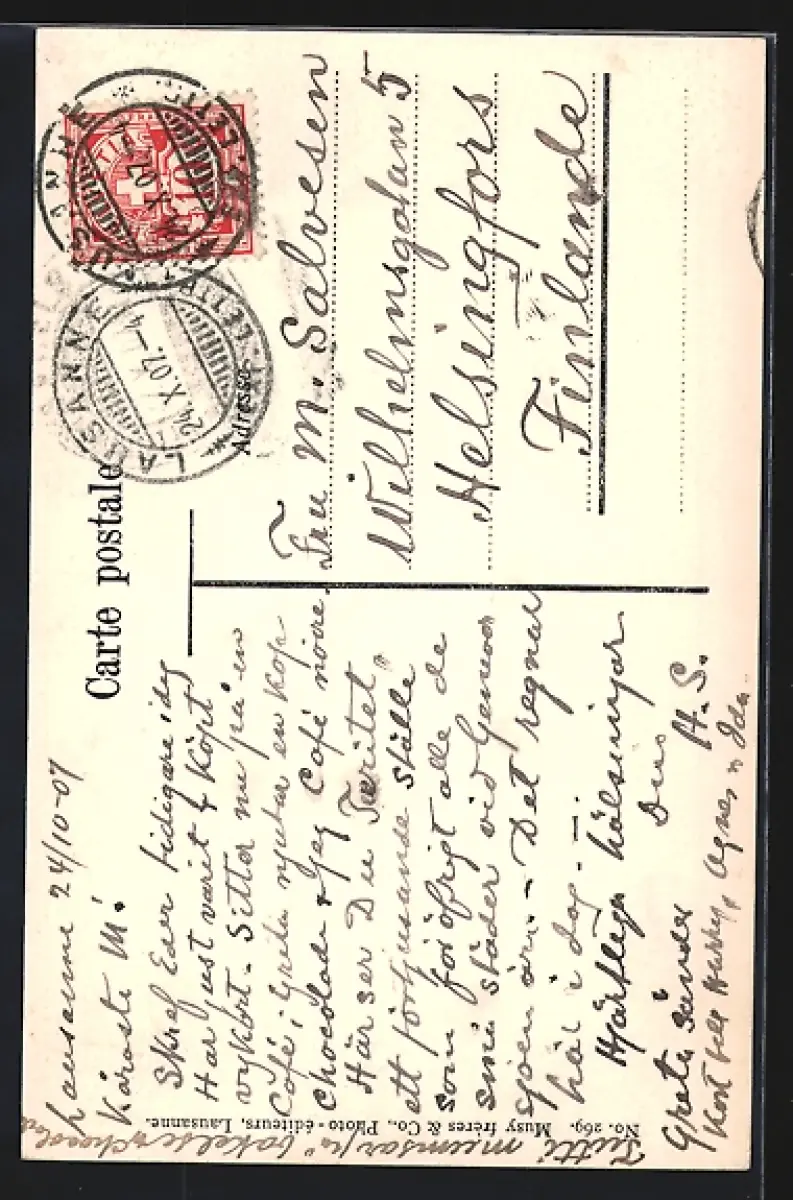 Carte postale
Adresse
LAUSANNE
24.X.07.-4
LAUSANNE
10
Lausanne 24/10-07
Käraste M!
Skref Eder tidigare i dag
Har just varit & köpt
vykort. Sitter nu på en
Café, Greta njutar en kop
chocolade & jag Café noire.
Här ser Du Territet,
ett förtjusande ställe
som för öfrigt alla de
små städer vid Genever
sjöen äro. - Det regnar
här i dag. -
Hjärtliga hälsningar
Din
H. S.
Greta sänder
kort till Harry, Agnes & Ida
Tutti mumsar på
No. 269. Musy frères & Co., Photo-éditeurs, Lausanne.
Fru M. Salvesen
Wilhelmsgatan 5
Helsingfors
Finlande